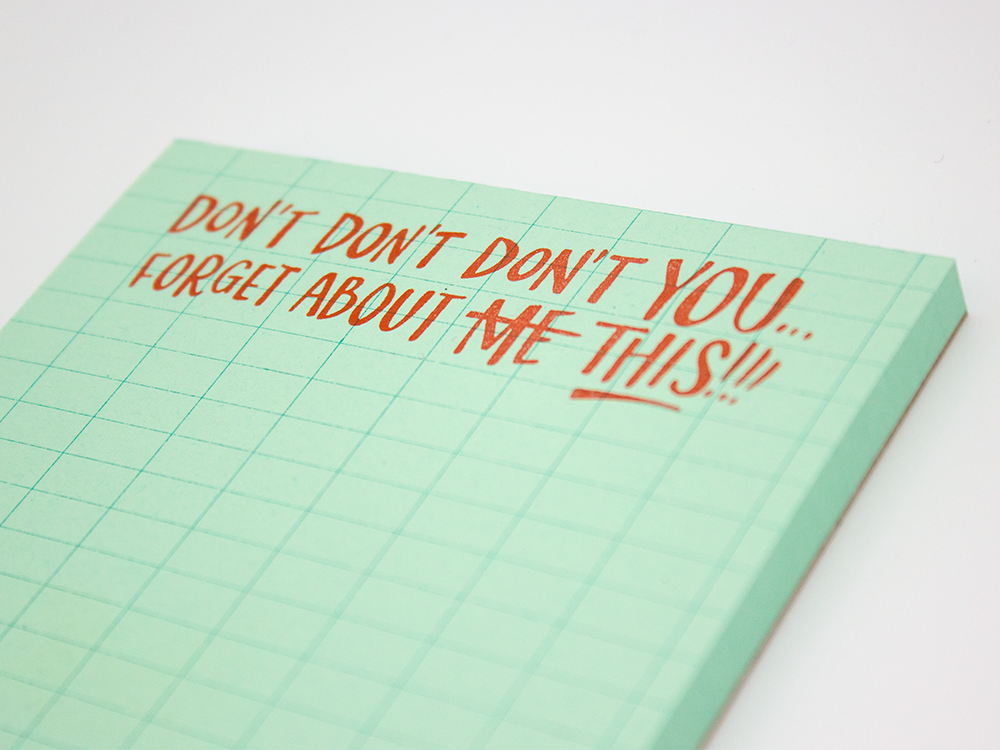 DON'T DON'T DON'T YOU...
FORGET ABOUT ME THIS!!!